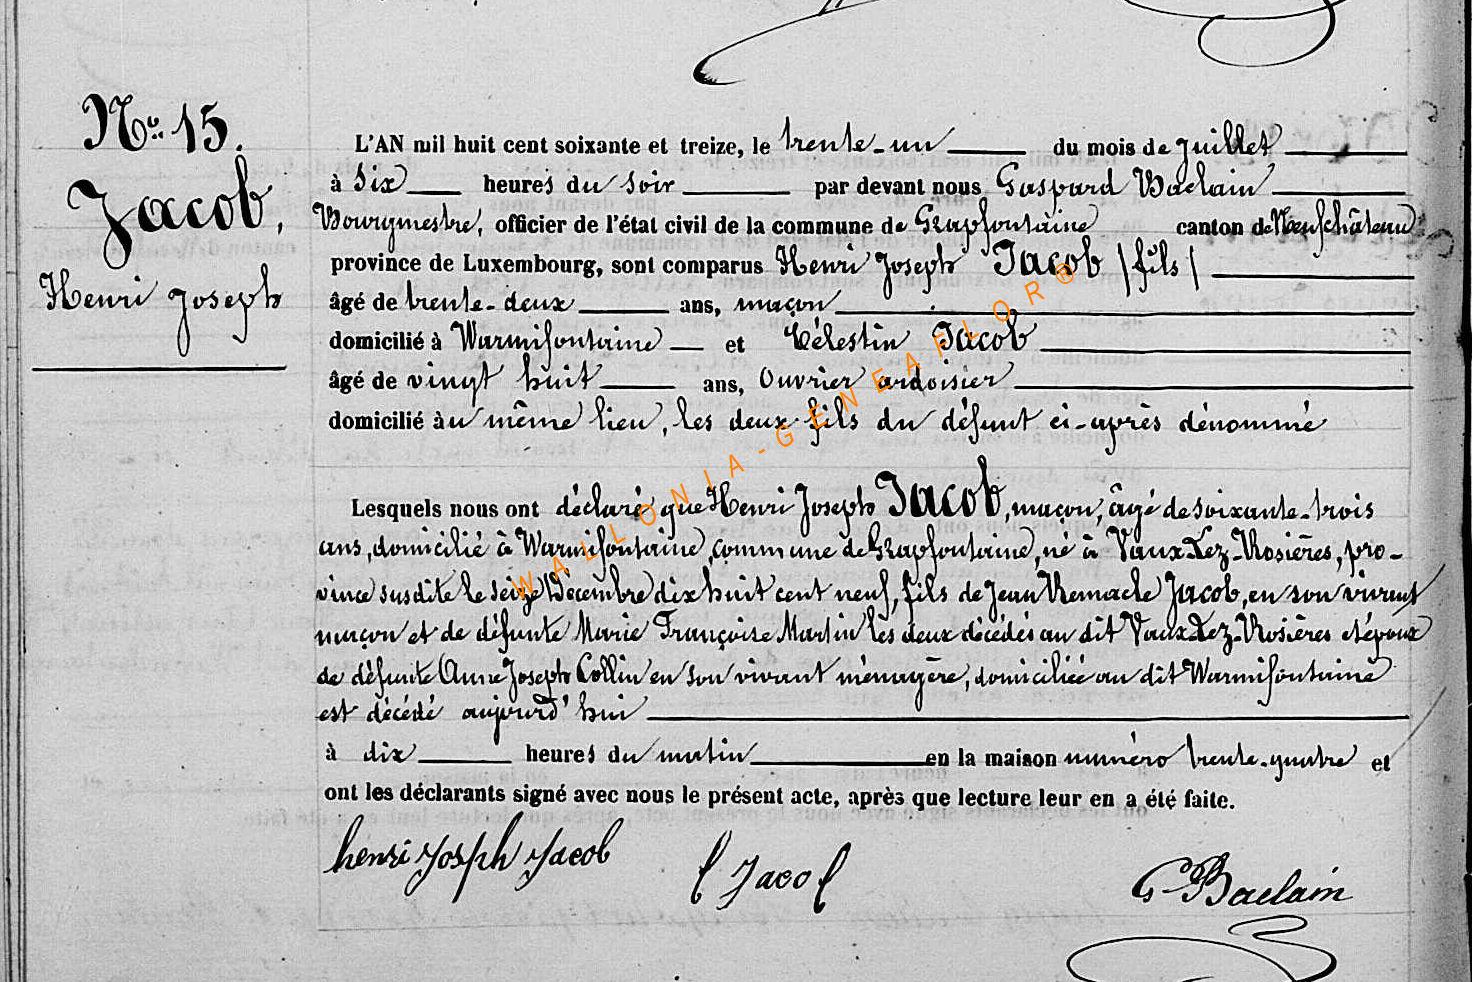 No. 15.
Jacob,
Henri Joseph
L'AN mil huit cent soixante et treize, le trente-un du mois de juillet
à six heures du soir par devant nous Gaspard Baclain
Bourgmestre, officier de l'état civil de la commune de Grapfontaine canton de Neufchâteau
province de Luxembourg, sont comparus Henri Joseph Jacob (fils)
âgé de trente-deux ans, maçon
domicilié à Warmifontaine et Célestin Jacob
âgé de vingt huit ans, Ouvrier ardoisier
domicilié au même lieu, les deux fils du défunt ci-après dénommé
Lesquels nous ont déclaré que Henri Joseph Jacob, maçon, âgé de soixante-trois
ans, domicilié à Warmifontaine, commune de Grapfontaine, né à Vaux-Lez-Rosières, pro-
vince susdite le seize Décembre dix huit cent neuf, fils de Jean Remacle Jacob, en son vivant
maçon et de défunte Marie Françoise Martin les deux décédés au dit Vaux-Lez-Rosières et époux
de défunte Anne Joseph Collin en son vivant ménagère, domiciliée au dit Warmifontaine
est décédé aujourd'hui
à dix heures du matin en la maison numéro trente-quatre et
ont les déclarants signé avec nous le présent acte, après que lecture leur en a été faite.
henri Josph Jacob C Jacob G Baclain
WALLONIA-GENEAFLOR®